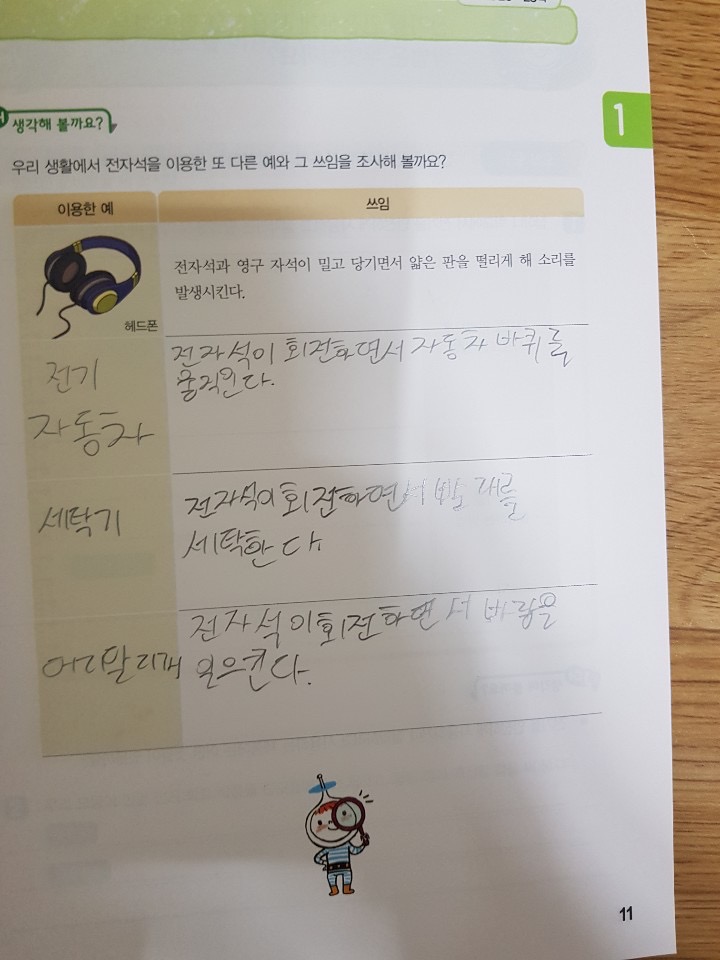 생각해 볼까요?
1
우리 생활에서 전자석을 이용한 또 다른 예와 그 쓰임을 조사해 볼까요?
이용한 예
쓰임
전자석과 영구 자석이 밀고 당기면서 얇은 판을 떨리게 해 소리를
발생시킨다.
헤드폰
전기
자동차
전자석이 회전하면서 자동차 바퀴를
움직인다.
세탁기
전자석이 회전하면서 빨래를
세탁한다
머리말리개
전자석이 회전하면서 바람을
일으킨다.
11